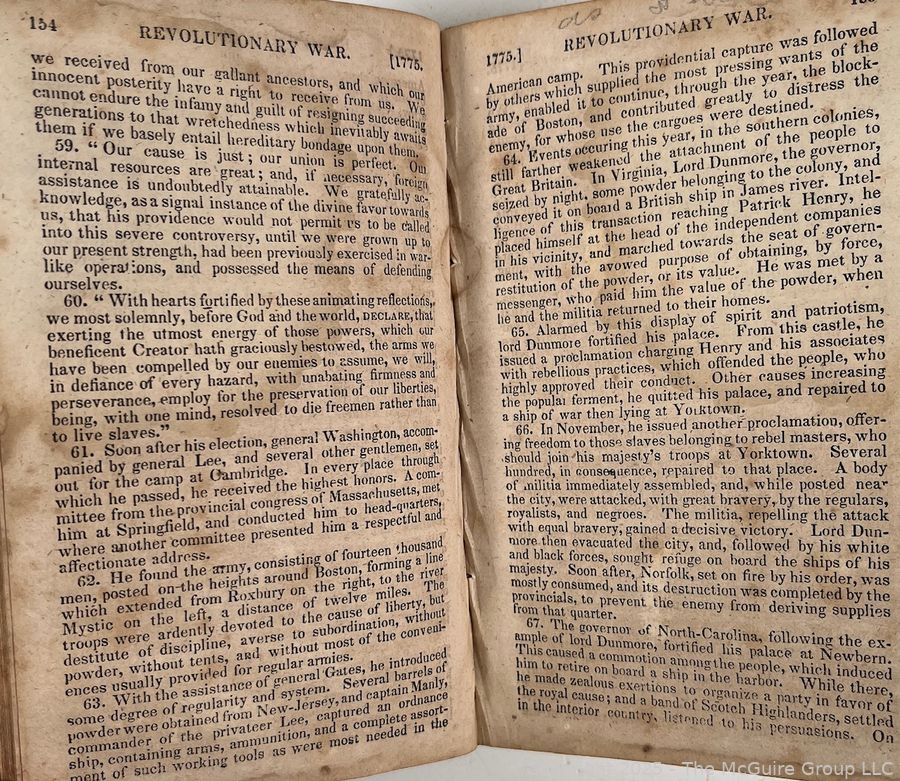 154
REVOLUTIONARY WAR.
[1775.
we received from our gallant ancestors, and which our
innocent posterity have a right to receive from us. We
cannot endure the infamy and guilt of resigning succeeding
generations to that wretchedness which inevitably awaits
them if we basely entail hereditary bondage upon them.
59. "Our cause is just; our union is perfect. Our
internal resources are great; and, if necessary, foreign
assistance is undoubtedly attainable. We gratefully ac-
knowledge, as a signal instance of the divine favor towards
us, that his providence would not permit us to be called
into this severe controversy, until we were grown up to
our present strength, had been previously exercised in war-
like operations, and possessed the means of defending
ourselves.
60. "With hearts fortified by these animating reflections,
we most solemnly, before God and the world, DECLARE, that
exerting the utmost energy of those powers, which our
beneficent Creator hath graciously bestowed, the arms we
have been compelled by our enemies to assume, we will,
in defiance of every hazard, with unabating firmness and
perseverance, employ for the preservation of our liberties,
being, with one mind, resolved to die freemen rather than
to live slaves."
61. Soon after his election, general Washington, accom-
panied by general Lee, and several other gentlemen, set
out for the camp at Cambridge. In every place through
which he passed, he received the highest honors. A com-
mittee from the provincial congress of Massachusetts, met
him at Springfield, and conducted him to head-quarters,
where another committee presented him a respectful and
affectionate address.
62. He found the army, consisting of fourteen thousand
men, posted on the heights around Boston, forming a line
which extended from Roxbury on the right, to the river
Mystic on the left, a distance of twelve miles. The
troops were ardently devoted to the cause of liberty, but
destitute of discipline, averse to subordination, without
powder, without tents, and without most of the conveni-
ences usually provided for regular armies.
63. With the assistance of general Gates, he introduced
some degree of regularity and system. Several barrels of
powder were obtained from New-Jersey, and captain Manly,
commander of the privateer Lee, captured an ordnance
ship, containing arms, ammunition, and a complete assort-
ment of such working tools as were most needed in the
1775.]
REVOLUTIONARY WAR.
American camp. This providential capture was followed
by others which supplied the most pressing wants of the
army, enabled it to continue, through the year, the block-
ade of Boston, and contributed greatly to distress the
enemy, for whose use the cargoes were destined.
64. Events occuring this year, in the southern colonies,
still farther weakened the attachment of the people to
Great Britain. In Virginia, Lord Dunmore, the governor,
seized by night, some powder belonging to the colony, and
conveyed it on board a British ship in James river. Intel-
ligence of this transaction reaching Patrick Henry, he
placed himself at the head of the independent companies
in his vicinity, and marched towards the seat of govern-
ment, with the avowed purpose of obtaining, by force,
restitution of the powder, or its value. He was met by a
messenger, who paid him the value of the powder, when
he and the militia returned to their homes.
65. Alarmed by this display of spirit and patriotism,
lord Dunmore fortified his palace. From this castle, he
issued a proclamation charging Henry and his associates
with rebellious practices, which offended the people, who
highly approved their conduct. Other causes increasing
the popular ferment, he quitted his palace, and repaired to
a ship of war then lying at Yorktown.
66. In November, he issued another proclamation, offer-
ing freedom to those slaves belonging to rebel masters, who
should join his majesty's troops at Yorktown. Several
hundred, in consequence, repaired to that place. A body
of militia immediately assembled, and, while posted near
the city, were attacked, with great bravery, by the regulars,
royalists, and negroes. The militia, repelling the attack
with equal bravery, gained a decisive victory. Lord Dun-
more then evacuated the city, and, followed by his white
and black forces, sought refuge on board the ships of his
majesty. Soon after, Norfolk, set on fire by his order, was
mostly consumed, and its destruction was completed by the
provincials, to prevent the enemy from deriving supplies
from that quarter.
67. The governor of North-Carolina, following the ex-
ample of lord Dunmore, fortified his palace at Newbern.
This caused a commotion among the people, which induced
him to retire on board a ship in the harbor. While there,
he made zealous exertions to organize a party in favor of
the royal cause; and a band of Scotch Highlanders, settled
in the interior country, listened to his persuasions. On
The McGuire Group LLC